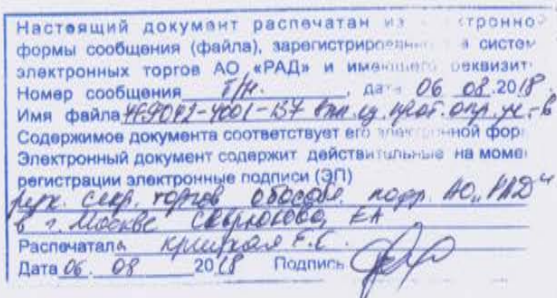 Настоящий документ распечатан из ктронно
формы сообщения (файла), зарегистрированн в систем
электронных торгов АО «РАД» и имеющего реквизит
Номер сообщения б/н. , дата 06 08.2018
Имя файла
Содержимое документа соответствует его электронной фор
Электронный документ содержит действительные на моме
регистрации электронные подписи (ЭП)
рук. секр. торгов обособл. подр. АО "РАД"
в г. Москве ЕА
Распечатала Е.С.
Дата 06. 08 2018 Подпись